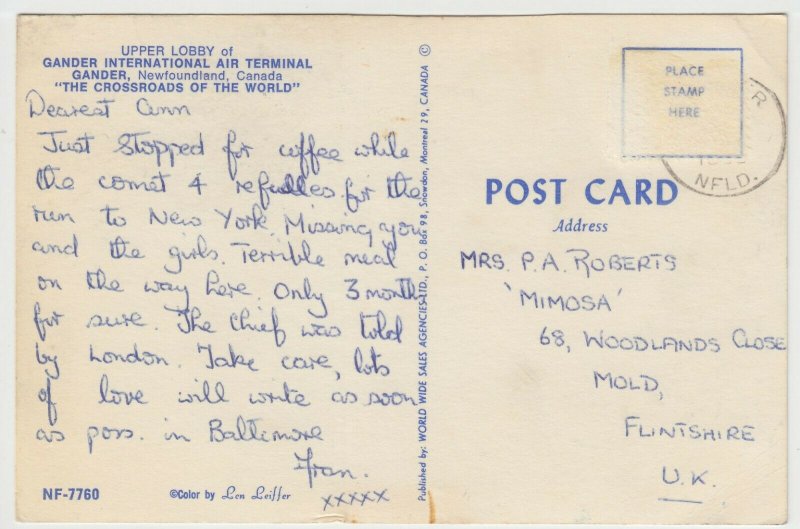 UPPER LOBBY of
GANDER INTERNATIONAL AIR TERMINAL
GANDER, Newfoundland, Canada
"THE CROSSROADS OF THE WORLD"
Dearest Ann
Just stopped for coffee while
the comet 4 refuelles for the
run to New York. Missing you
and the girls. Terrible meal
on the way here. Only 3 months
for sure. The Chief was told
by London. Take care, lots
of love will write as soon
as poss. in Baltimore
Fran.
xxxxx
NF-7760
©Color by Len Leiffer
Published by: WORLD WIDE SALES AGENCIES LTD., P. O. Box 98, Snowdon, Montreal 29, CANADA ©
PLACE
STAMP
HERE
NFLD.
POST CARD
Address
MRS. P.A. ROBERTS
'MIMOSA'
68, WOODLANDS CLOSE
MOLD,
FLINTSHIRE
U.K.